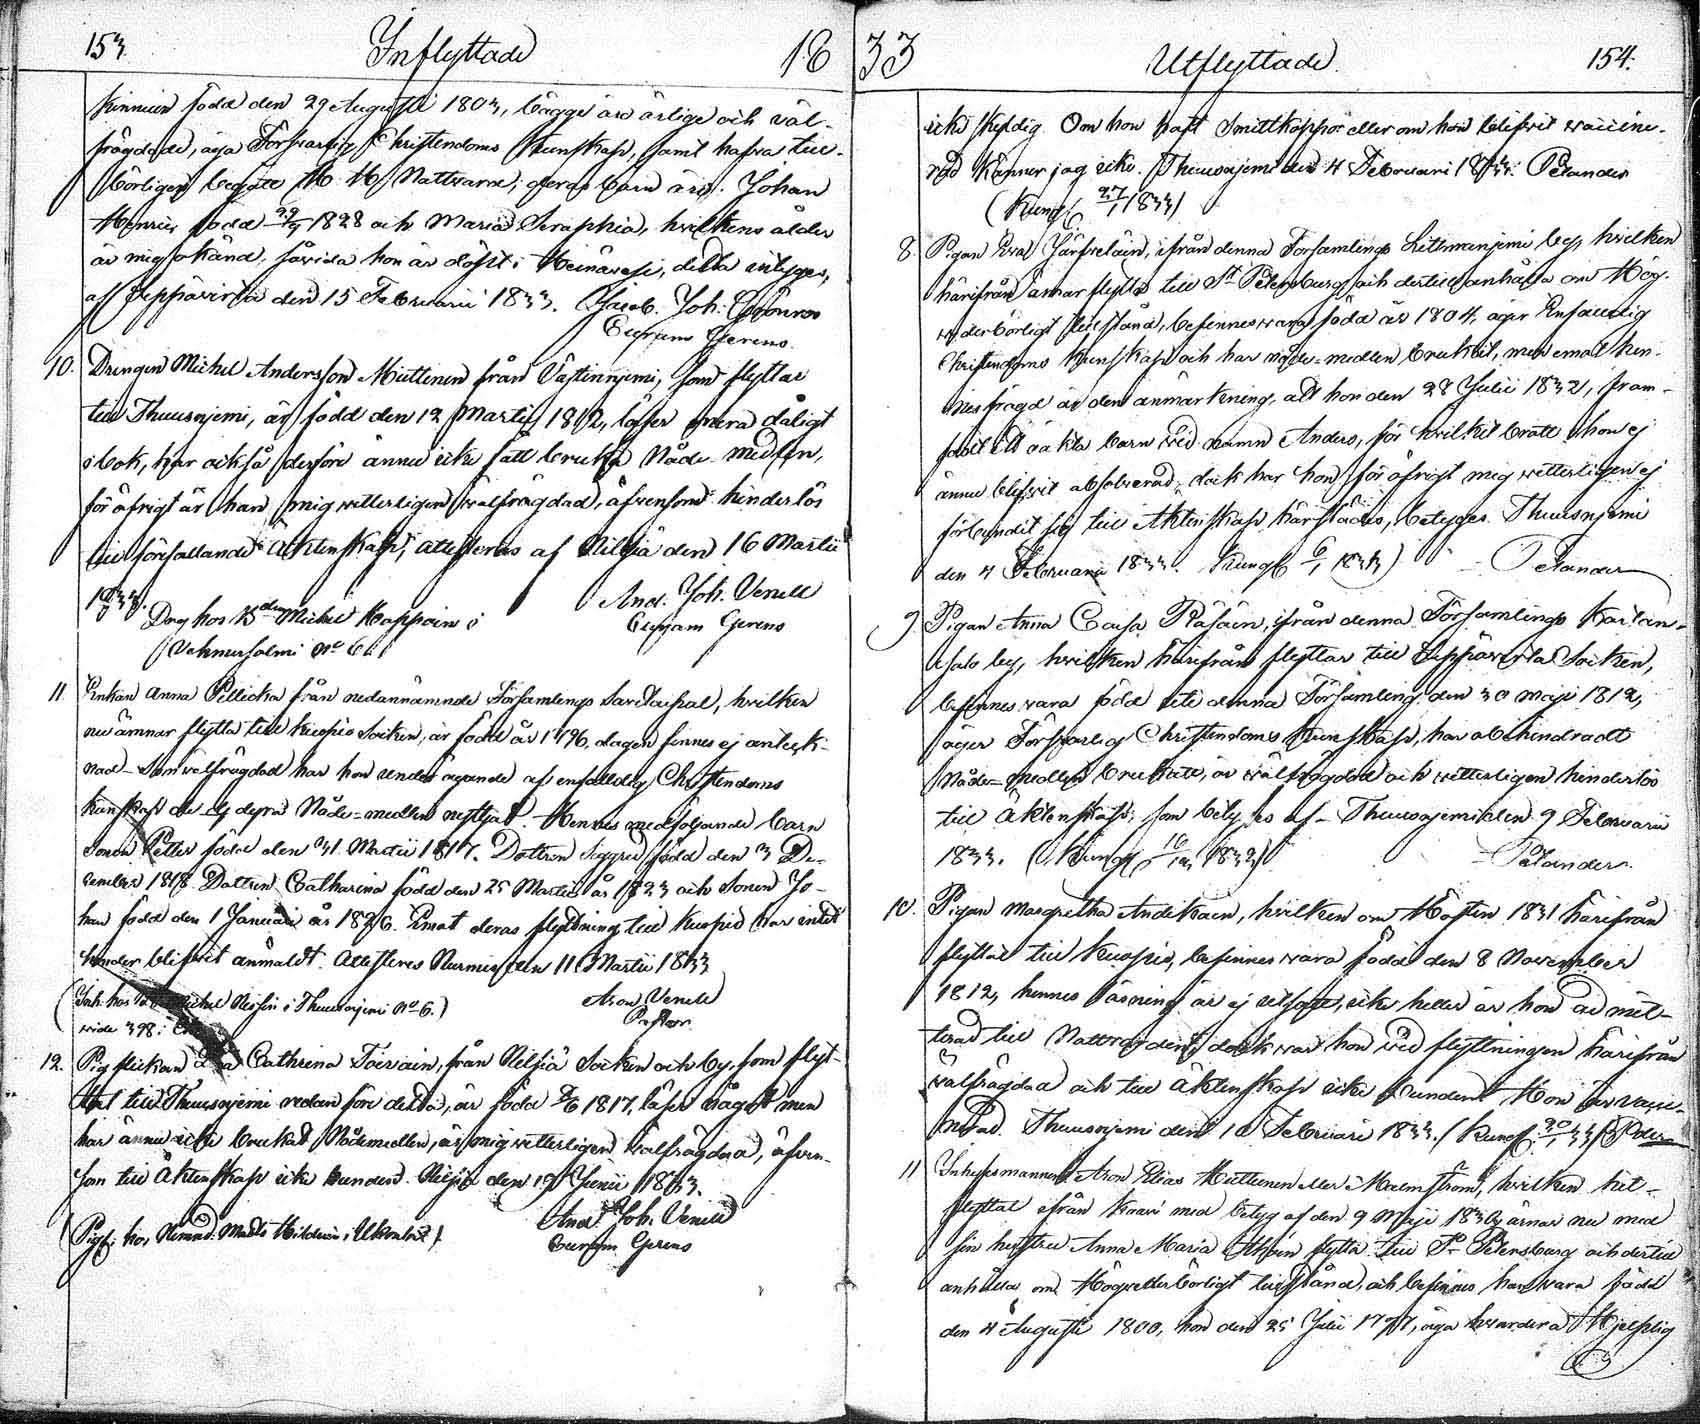 153 Inflyttade 18
kinnien född den 29 Augusti 1803, bägge äro ärlige och väl-
frägdade, äga Försvarlig Christendoms Kunskap, samt hafva till-
börligen begått H. H. Nattvard; deras barn äro: Johan
Henric född 29/9 1828 och Maria Seraphia, hvilkens ålder
är mig okänd, såvida hon är döpt i Heinävesi, detta intygas,
af Leppävirta den 15 Februarii 1833. Jacob Joh: Grönroos
10. Drengen Michel Andersson Miettinen från Västinniemi, som flyttar
till Thuusnjemi, är född den 12 Martii 1812, läser mera dåligt
i bok, har också derföre ännu icke fått bruka Nåde-medlen,
för öfrigt är han mig vitterligen välfrägdad, äfvensom hinderlös
till förefallande Äktenskap, attesteras af Nilsiä den 16 Martii
1833. And. Joh. Venell
Dräng hos Bden Michel Kappain i
Vehmersalmi No 6.
11. Enkan Anna Pellicka från nedannämnde Församlings Savitaipal, hvilken
nu ämnar flytta till Kuopio Socken, är född år 1796, dagen finnes ej anteck-
nad. Som välfrägdad har hon under ägande af enfalldig Christendoms
kunskap de dyra Nåde-medlen nyttjat. Hennes medföljande barn
Sonen Petter född den 31 Martii 1817. Dottren Siggred född den 3 De-
cember 1818. Dottren Catharina född den 25 Martii år 1823 och Sonen Jo-
han född den 1 Januari år 1826. Emot deras flyttning till Kuopio har intet
hinder blifvit anmäldt. Attesteras Nurmis den 11 Martii 1833
(Inh: hos Michel i Thuusnjemi No 6.) Aron Venell
vide 398: Pastor
12. Pigflickan Cathrina Toivain, från Nilsiä Socken och by, som flyt-
tat till Thuusnjemi redan före detta, är född 1817, läser något men
har ännu icke brukat Nådemedlen, är mig vitterligen välfrägdad, äfven-
som till Äktenskap icke bunden. Nilsiä den 19 Junii 1833.
And. Joh. Venell
(Pigfl: hos Nemnd: Matts
33 Utflyttade 154.
icke skyldig. Om hon haft Smittkoppor eller om hon blifvit vaccine-
rad känner jag icke. Thuusnjemi den 4 Februari 1833. Pelander
(Kungl. 27/1 1833)
8. Pigan Eva Järfveläin, ifrån denna Församlings Litmanjemi by, hvilken
härifrån ämnar flytta till St Petersburg och dertill anhålla om Hög-
vederbörligt tillstånd, befinnes vara född år 1804, äger Enfaldig
Christendoms kunskap och har nåde-medlen brukat, men emot hen-
nes frägd är den anmärkning, att hon den 28 Julii 1832, fram-
födt ett oäkta barn vid namn Anders, för hvilket brott hon ej
ännu blifvit absolverad; dock har hon för öfrigt mig vitterligen ej
förbundit sig till Äktenskap härstädes, betygas. Thuusnjemi
den 4 Februarii 1833. Kungl. 6/1 1833) Pelander
9 Pigan Anna Caisa Räsäin, ifrån denna Församlings Kartan-
salo by, hvilken härifrån flyttar till Leppävirta Socken,
befinnes vara född uti denna Församling den 30 Maji 1812,
äger Försvarlig Christendoms kunskap, har obehindradt
Nåde-medlen brukat, är välfrägdad och vitterligen hinderlös
till Äktenskap; som betygas af. Thuusnjemi den 9 Februarii
1833. (Kungl. 16/12 1832) Pelander.
10. Pigan Margretha Andikain, hvilken om Hösten 1831 härifrån
flyttat till Kuopio, befinnes vara född den 8 November
1812, hennes läsning är ej utsatt, icke heller är hon admit-
terad till Nattvarden; dock var hon vid flyttningen härifrån
välfrägdad och till Äktenskap icke bunden. Hon är vacci-
nerad. Thuusnjemi den 10 Februari 1833. (Kungl. 20/1 33)
11 Inhysesmannen Aron Elias Miettinen eller Malmström, hvilken hit-
flyttat ifrån Kaavi med betyg af den 9 Maji 1830, ämnar nu med
sin hustru Anna Maria flytta till St Petersburg och dertill
anhålla om Högvederbörligt tillstånd, och befinnes han vara född
den 4 Augusti 1800, hon den 25 Julii 1797, äga hvardera Hjelplig